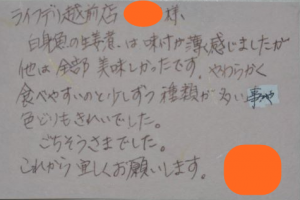 ライフデリ越前店 様、
白身魚の生姜煮は味けが薄く感じましたが
他は全部美味しかったです。やわらかく
食べやすいのと少しずつ種類が多い事や
色どりもきれいでした。
ごちそうさまでした。
これから宜しくお願いします。